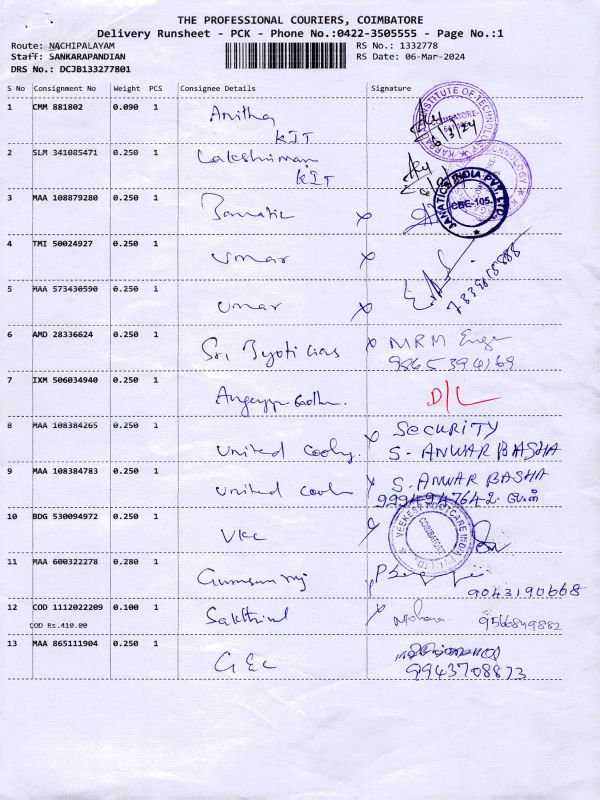 THE PROFESSIONAL COURIERS, COIMBATORE
Delivery Runsheet - PCK - Phone No.:0422-3505555 - Page No.:1
Route: NACHIPALAYAM RS No.: 1332778
Staff: SANKARAPANDIAN RS Date: 06-Mar-2024
DRS No.: DCJB133277801
S No Consignment No Weight PCS Consignee Details Signature
1 CMM 881802 0.090 1 Anitha
KIT 6/3/24
2 SLM 341085471 0.250 1 Lakshmanan
KIT
3 MAA 108879280 0.250 1 x
JANATICS INDIA PVT. LTD. CBE-105.
4 TMI 50024927 0.250 1 Umar x
5 MAA 573430590 0.250 1 Umar x
6 AMD 28336624 0.250 1 Sri Jyoti x MRM Engg
9865394169
7 IXM 506034940 0.250 1 D/L
8 MAA 108384265 0.250 1 United x SECURITY
S. ANWAR BASHA
9 MAA 108384783 0.250 1 United x S. ANWAR BASHA
9994947642
10 BDG 530094972 0.250 1 VKC x
VEEKESY FOOTCARE INDIA PVT LTD COIMBATORE
11 MAA 600322278 0.280 1
9043190668
12 COD 1112022209 0.100 1 x Mohana 9566849882
COD Rs.410.00
13 MAA 865111904 0.250 1 GEC
9943708873